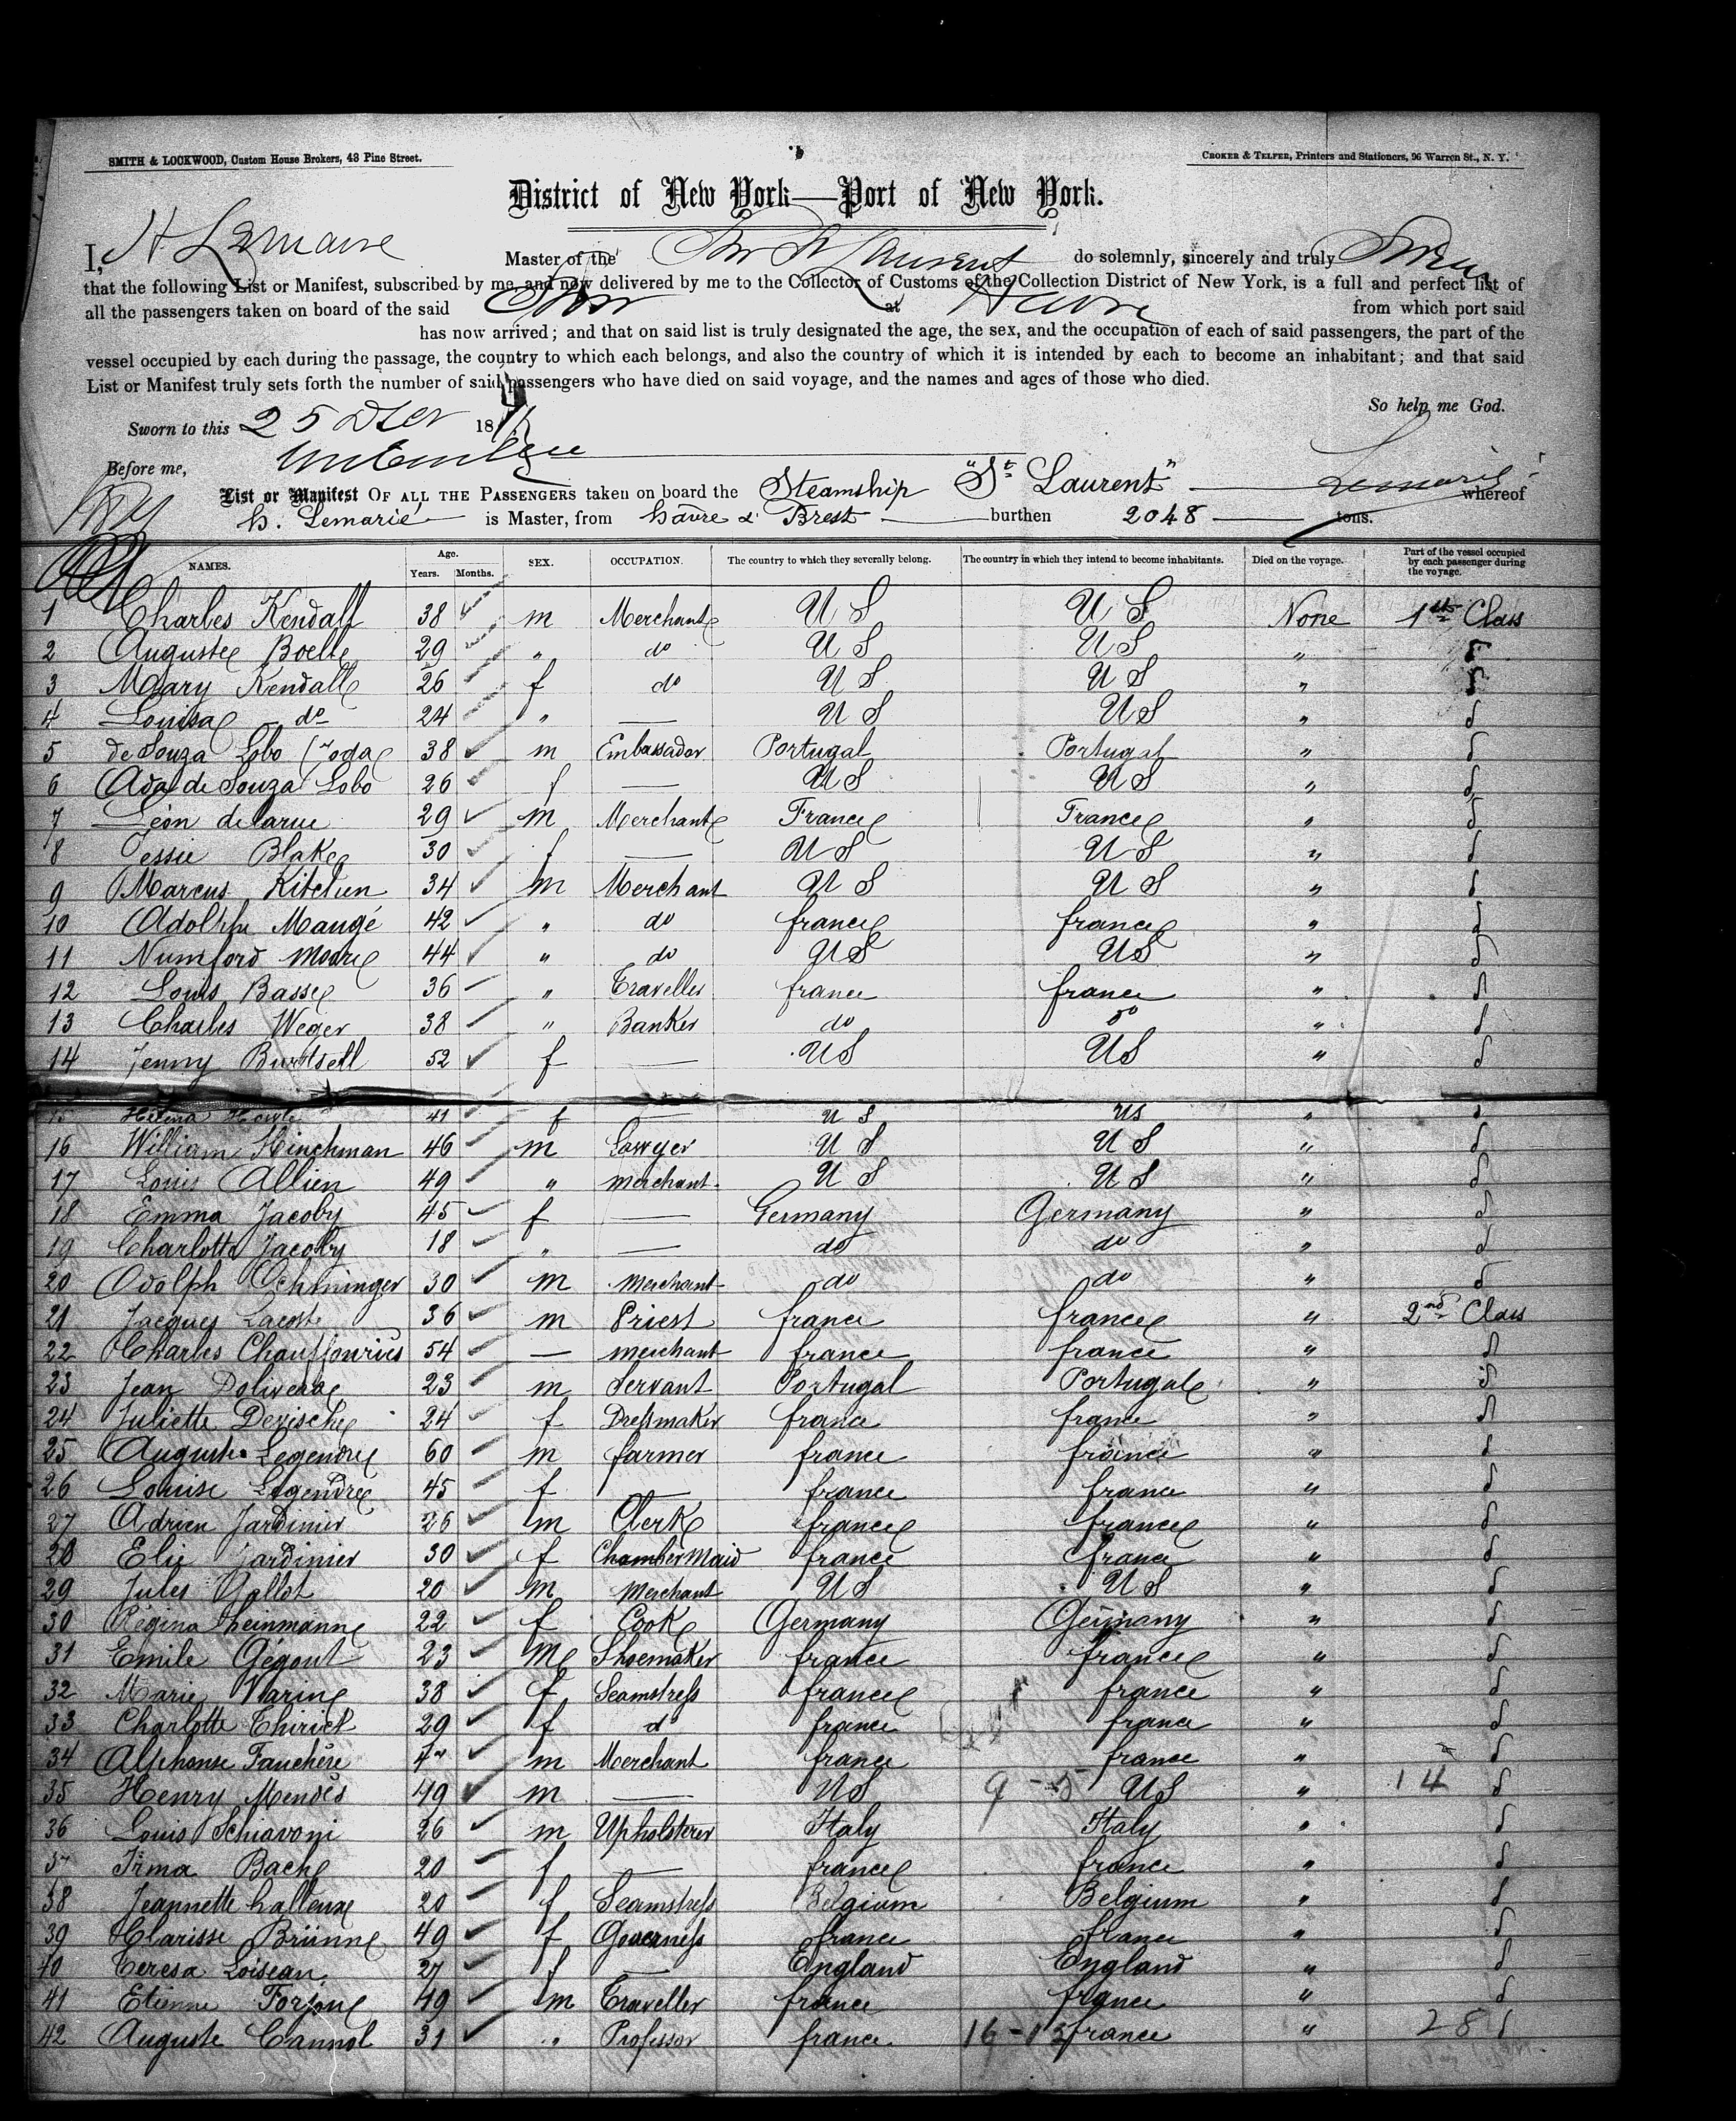 SMITH & LOCKWOOD, Custom House Brokers, 43 Pine Street.
CROKER & TELFER, Printers and Stationers, 96 Warren St., N. Y.
District of New York—Port of New York.
I, H Lemarie Master of the Str St Laurent do solemnly, sincerely and truly Swear
that the following List or Manifest, subscribed by me, and now delivered by me to the Collector of Customs of the Collection District of New York, is a full and perfect list of
all the passengers taken on board of the said Str at Havre from which port said
has now arrived; and that on said list is truly designated the age, the sex, and the occupation of each of said passengers, the part of the
vessel occupied by each during the passage, the country to which each belongs, and also the country of which it is intended by each to become an inhabitant; and that said
List or Manifest truly sets forth the number of said passengers who have died on said voyage, and the names and ages of those who died.
So help me God.
Sworn to this 25 18
Before me,
List or Manifest OF ALL THE PASSENGERS taken on board the Steamship "St Laurent" whereof
H. Lemarié is Master, from Havre & Brest burthen 2048 tons.
NAMES. Age. Years. Months. SEX. OCCUPATION. The country to which they severally belong. The country in which they intend to become inhabitants. Died on the voyage. Part of the vessel occupied by each passenger during the voyage.
1 Charles Kendall 38 m Merchant U S U S None 1st Class
2 Auguste Boelle 29 " do U S U S " d
3 Mary Kendall 26 f do U S U S " d
4 Louisa do 24 " — U S U S " d
5 de Souza Lobo 38 m Embassador Portugal Portugal " d
6 Ada de Souza Lobo 26 f — U S U S " d
7 Léon delarue 29 m Merchant France France " d
8 Jessie Blake 30 f — U S U S " d
9 Marcus Kitchen 34 m Merchant U S U S " d
10 Adolphe Maugé 42 " do france france " d
11 Numford Moore 44 " do U S U S " d
12 Louis Basse 36 " Traveller france france " d
13 Charles Weger 38 " Banker do do " d
14 Jenny Burtsell 52 f — U S U S " d
15 Helena 41 f — U S U S " d
16 William Hinchman 46 m Lawyer U S U S " d
17 Louis Allien 49 " merchant U S U S " d
18 Emma Jacoby 45 f — Germany Germany " d
19 Charlotte Jacoby 18 " — do do " d
20 Adolph Ochninger 30 m merchant do do " d
21 Jacques Lacoste 36 m Priest france france " 2nd Class
22 Charles Chauffouriés 54 — merchant france france " d
23 Jean Dolivera 23 m Servant Portugal Portugal " d
24 Juliette Derische 24 f Dressmaker france france " d
25 Auguste Legendre 60 m farmer france france " d
26 Louise Legendre 45 f — france france " d
27 Adrien Jardinier 26 m Clerk france france " d
28 Elie Jardinier 30 f Chamber Maid france france " d
29 Jules Gallot 20 m Merchant U S U S " d
30 Régina heinmann 22 f Cook Germany Germany " d
31 Emile Gégout 23 M Shoemaker france france " d
32 Marie Varine 38 f Seamstress france france " d
33 Charlotte Thiriet 29 f d france france " d
34 Alphonse Fauchére m Merchant france france " d
35 Henry Mendès 49 m — U S 9 - 5 U S " 14 d
36 Louis Schiavoni 26 m Upholsterer Italy Italy " d
37 Irma Bach 20 f — france france " d
38 Jeannette halleux 20 f Seamstress Belgium Belgium " d
39 Clarisse Brünne 49 f Governess france france " d
40 Teresa Loiseau 27 f — England England " d
41 Etienne Forjone 49 m Traveller france france " d
42 Auguste Cannol 31 " Professor france 16 - 13 france " 28 d